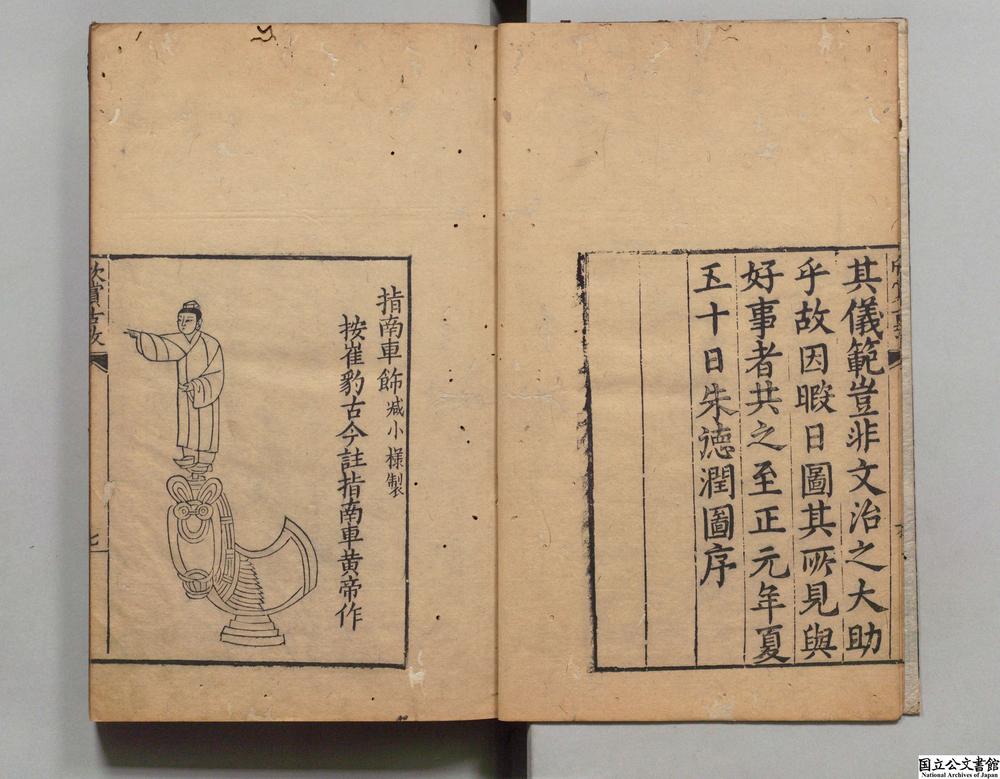 其儀範豈非文治之大助
乎故因暇日圖其所見與
好事者共之至正元年夏
五十日朱德潤圖序
指南車飾減小樣製
按崔豹古今註指南車黃帝作
七
国立公文書館
National Archives of Japan